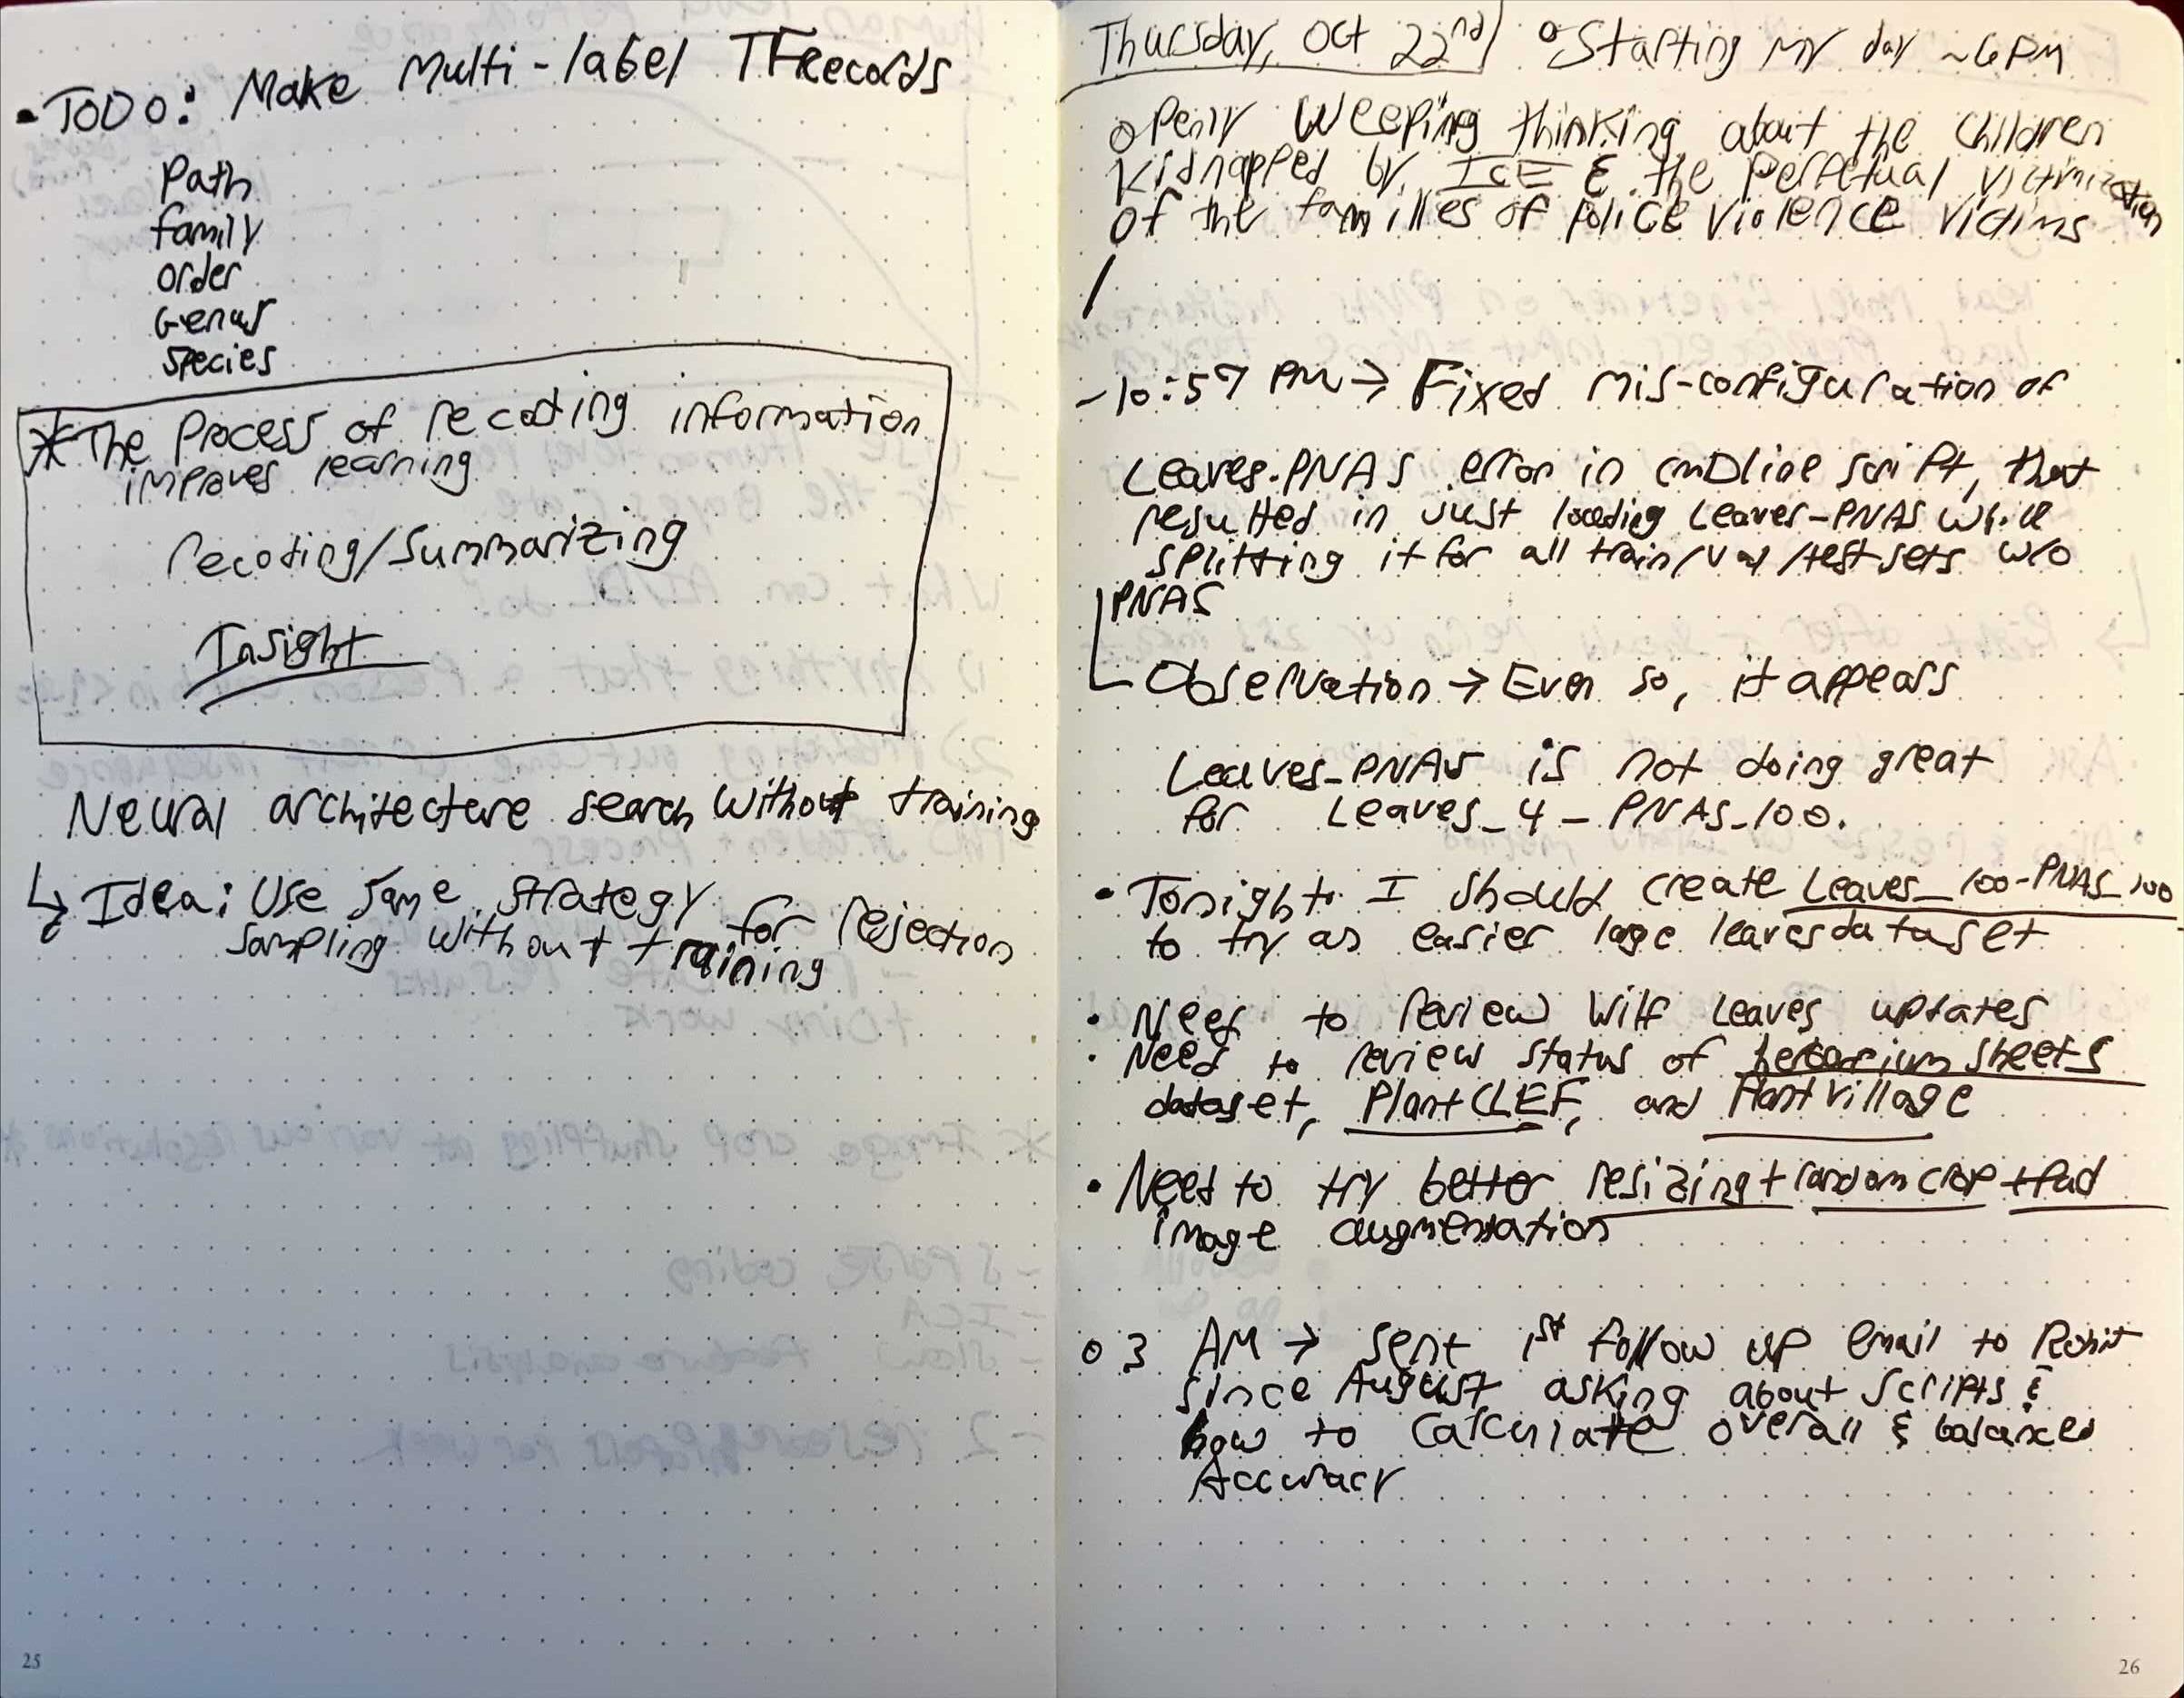 • TODO: Make Multi-label TFRecords
Path
family
order
Genus
species
* The Process of recoding information
improves learning
recoding/summarizing
Insight
Neural architecture search without training
↳ Idea: Use same strategy for rejection
sampling without training
25
Thursday, Oct 22nd
o Starting my day ~6PM
openly weeping thinking about the children
kidnapped by ICE & the perpetual victimization
of the families of police violence victims
- 10:57 PM → Fixed mis-configuration of
Leaves-PNAS error in cmDline script, that
resulted in just loading Leaves-PNAS while
splitting it for all train/val/test sets w/o
PNAS
Observation → Even so, it appears
Leaves_PNAS is not doing great
for Leaves_4-PNAS_100.
• Tonight I should create Leaves_100-PNAS_100
to try as easier large leaves dataset
• Need to review Wilf Leaves updates
• Need to review status of herbarium sheets
dataset, PlantCLEF, and PlantVillage
• Need to try better resizing + random crop + pad
image augmentation
o 3 AM → sent 1st follow up email to Rohit
since August asking about scripts &
how to calculate overall & balanced
Accuracy
26